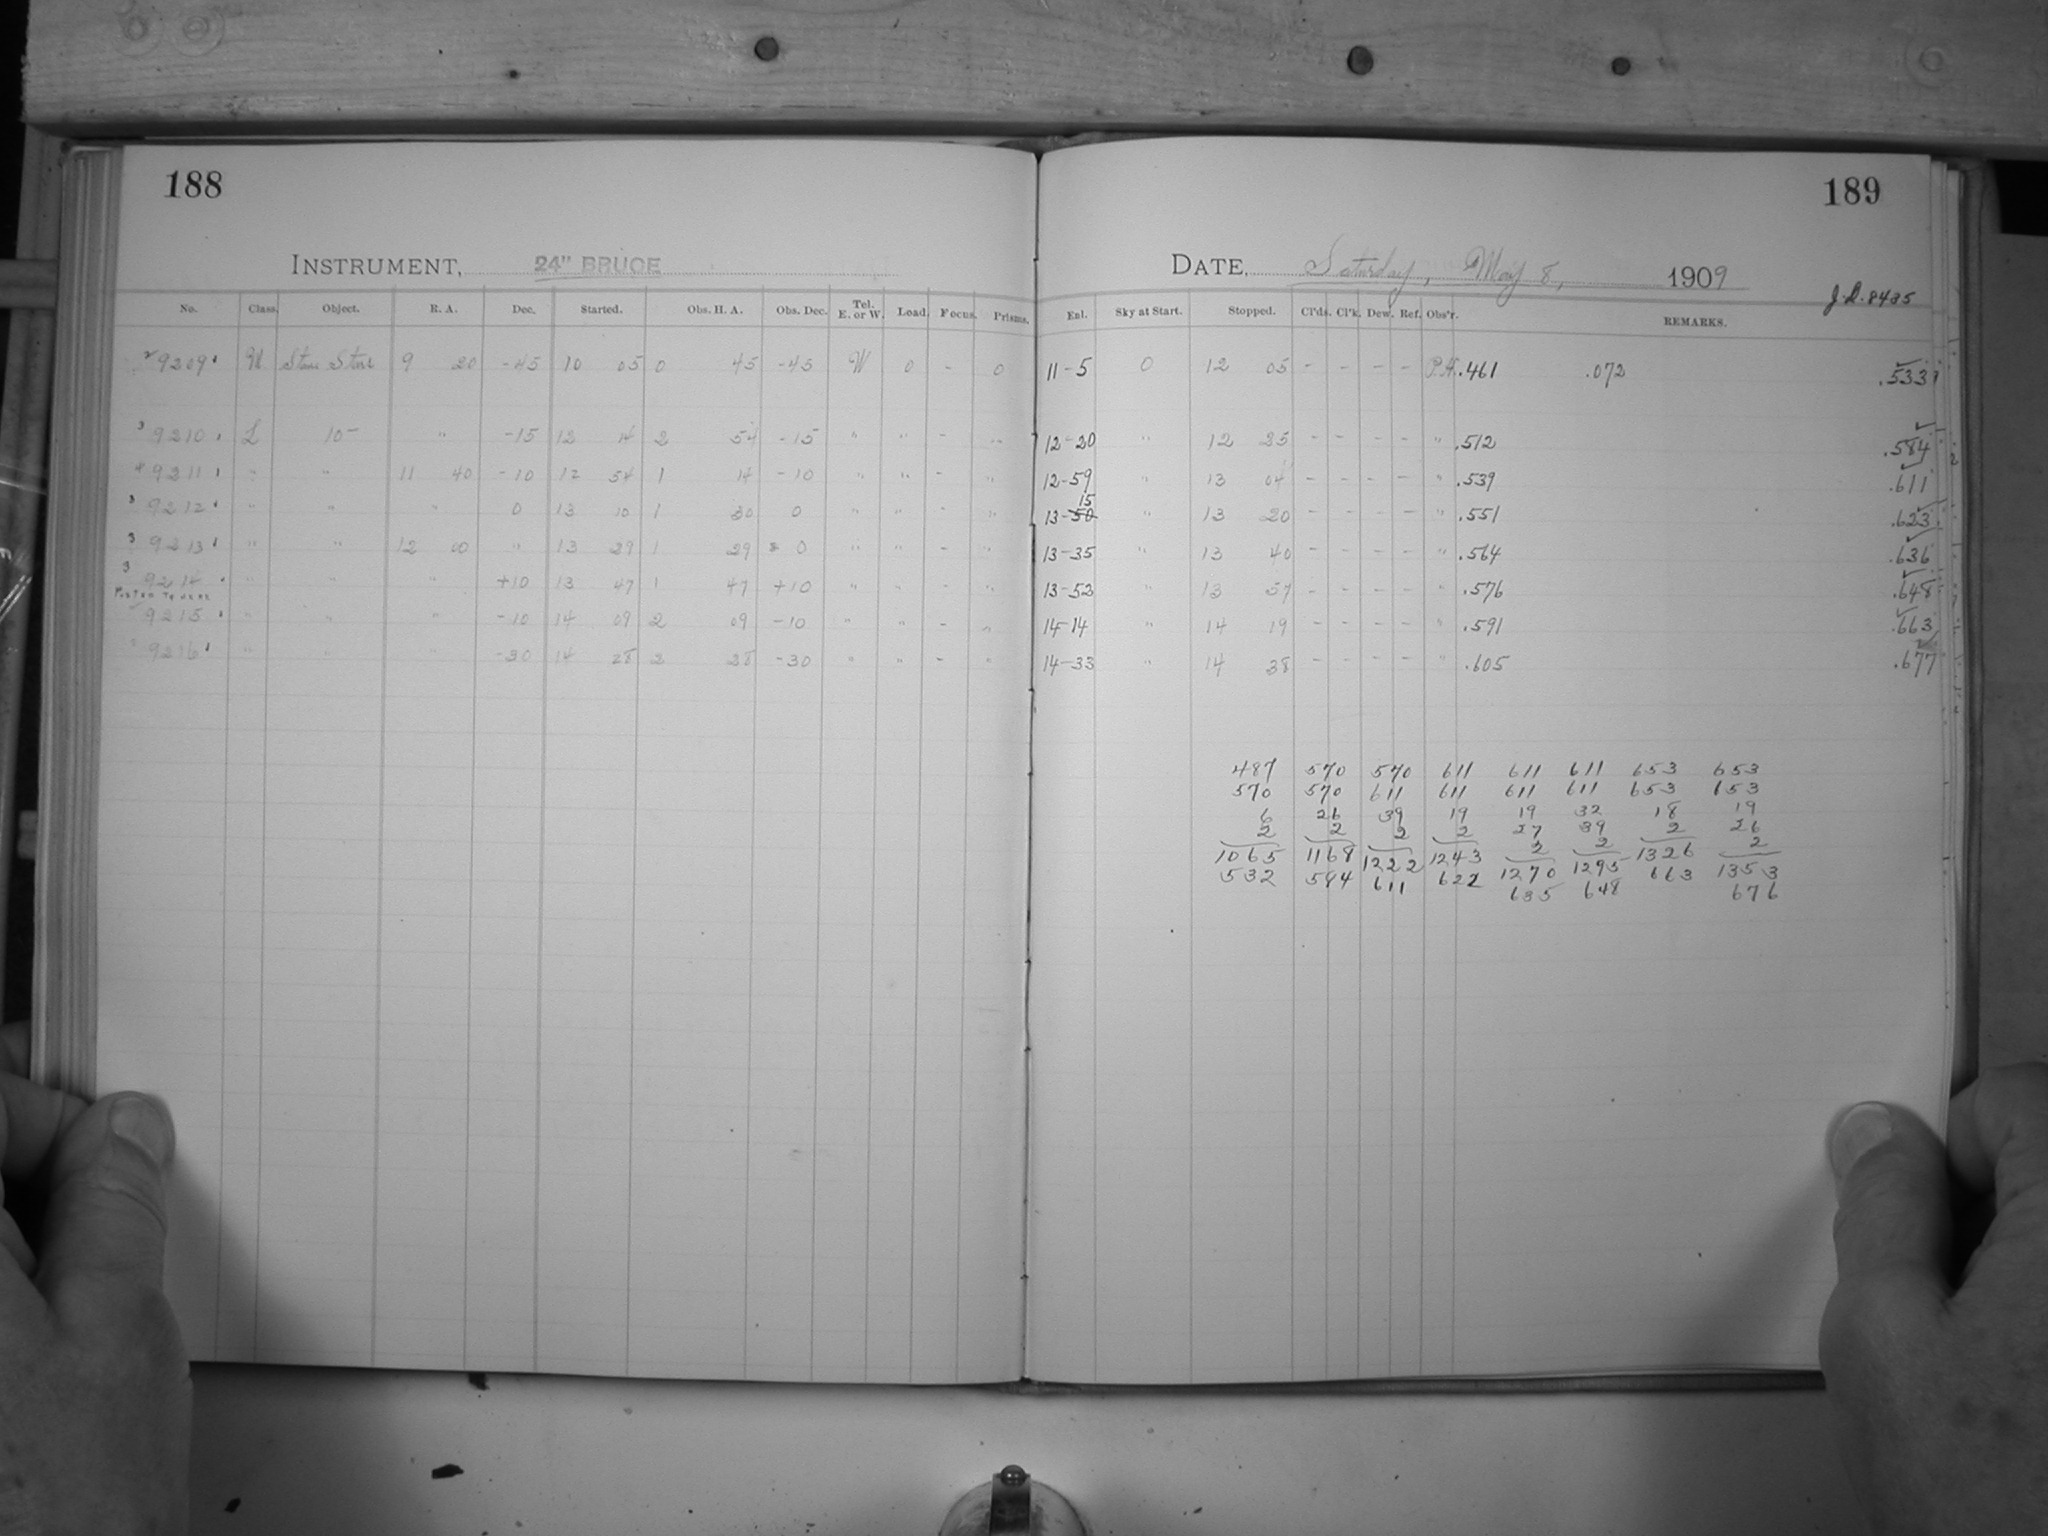 188
189
INSTRUMENT, 24" BRUCE
DATE, Saturday, May 8, 1909
J.D. 8435
No. Class. Object. R. A. Dec. Started. Obs. H. A. Obs. Dec. Tel. E. or W. Load. Focus. Prisms. Enl. Sky at Start. Stopped. Cl'ds. Cl'k. Dew. Ref. Obs'r. REMARKS.
9209 9 20 -45 10 05 0 45 -45 W 0 - 0 11-5 0 12 05 - - - - P.H. .461 .072 .533
9210 L 10- " -15 12 14 2 54 -15 " " - " 12-20 " 12 25 - - - - " .512 .584
9211 " " 11 40 -10 12 54 1 14 -10 " " - " 12-59 " 13 04 - - - - " .539 .611
9212 " " " 0 13 10 1 30 0 " " - " 13-50 15 " 13 20 - - - - " .551 .623
9213 " " 12 00 " 13 29 1 29 0 " " - " 13-35 " 13 40 - - - - " .564 .636
9214 " " " +10 13 47 1 47 +10 " " - " 13-52 " 13 57 - - - - " .576 .648
9215 " " " -10 14 09 2 09 -10 " " - " 14-14 " 14 19 - - - - " .591 .663
9216 " " " -30 14 28 2 28 -30 " " - " 14-33 " 14 38 - - - - " .605 .677
487 570 570 611 611 611 653 653
570 570 611 611 611 611 653 653
6 26 39 19 19 32 18 19
2 2 2 2 27 39 2 26
1065 1168 1222 1243 2 2 1326 2
532 584 611 622 1270 1295 663 1353
635 648 676